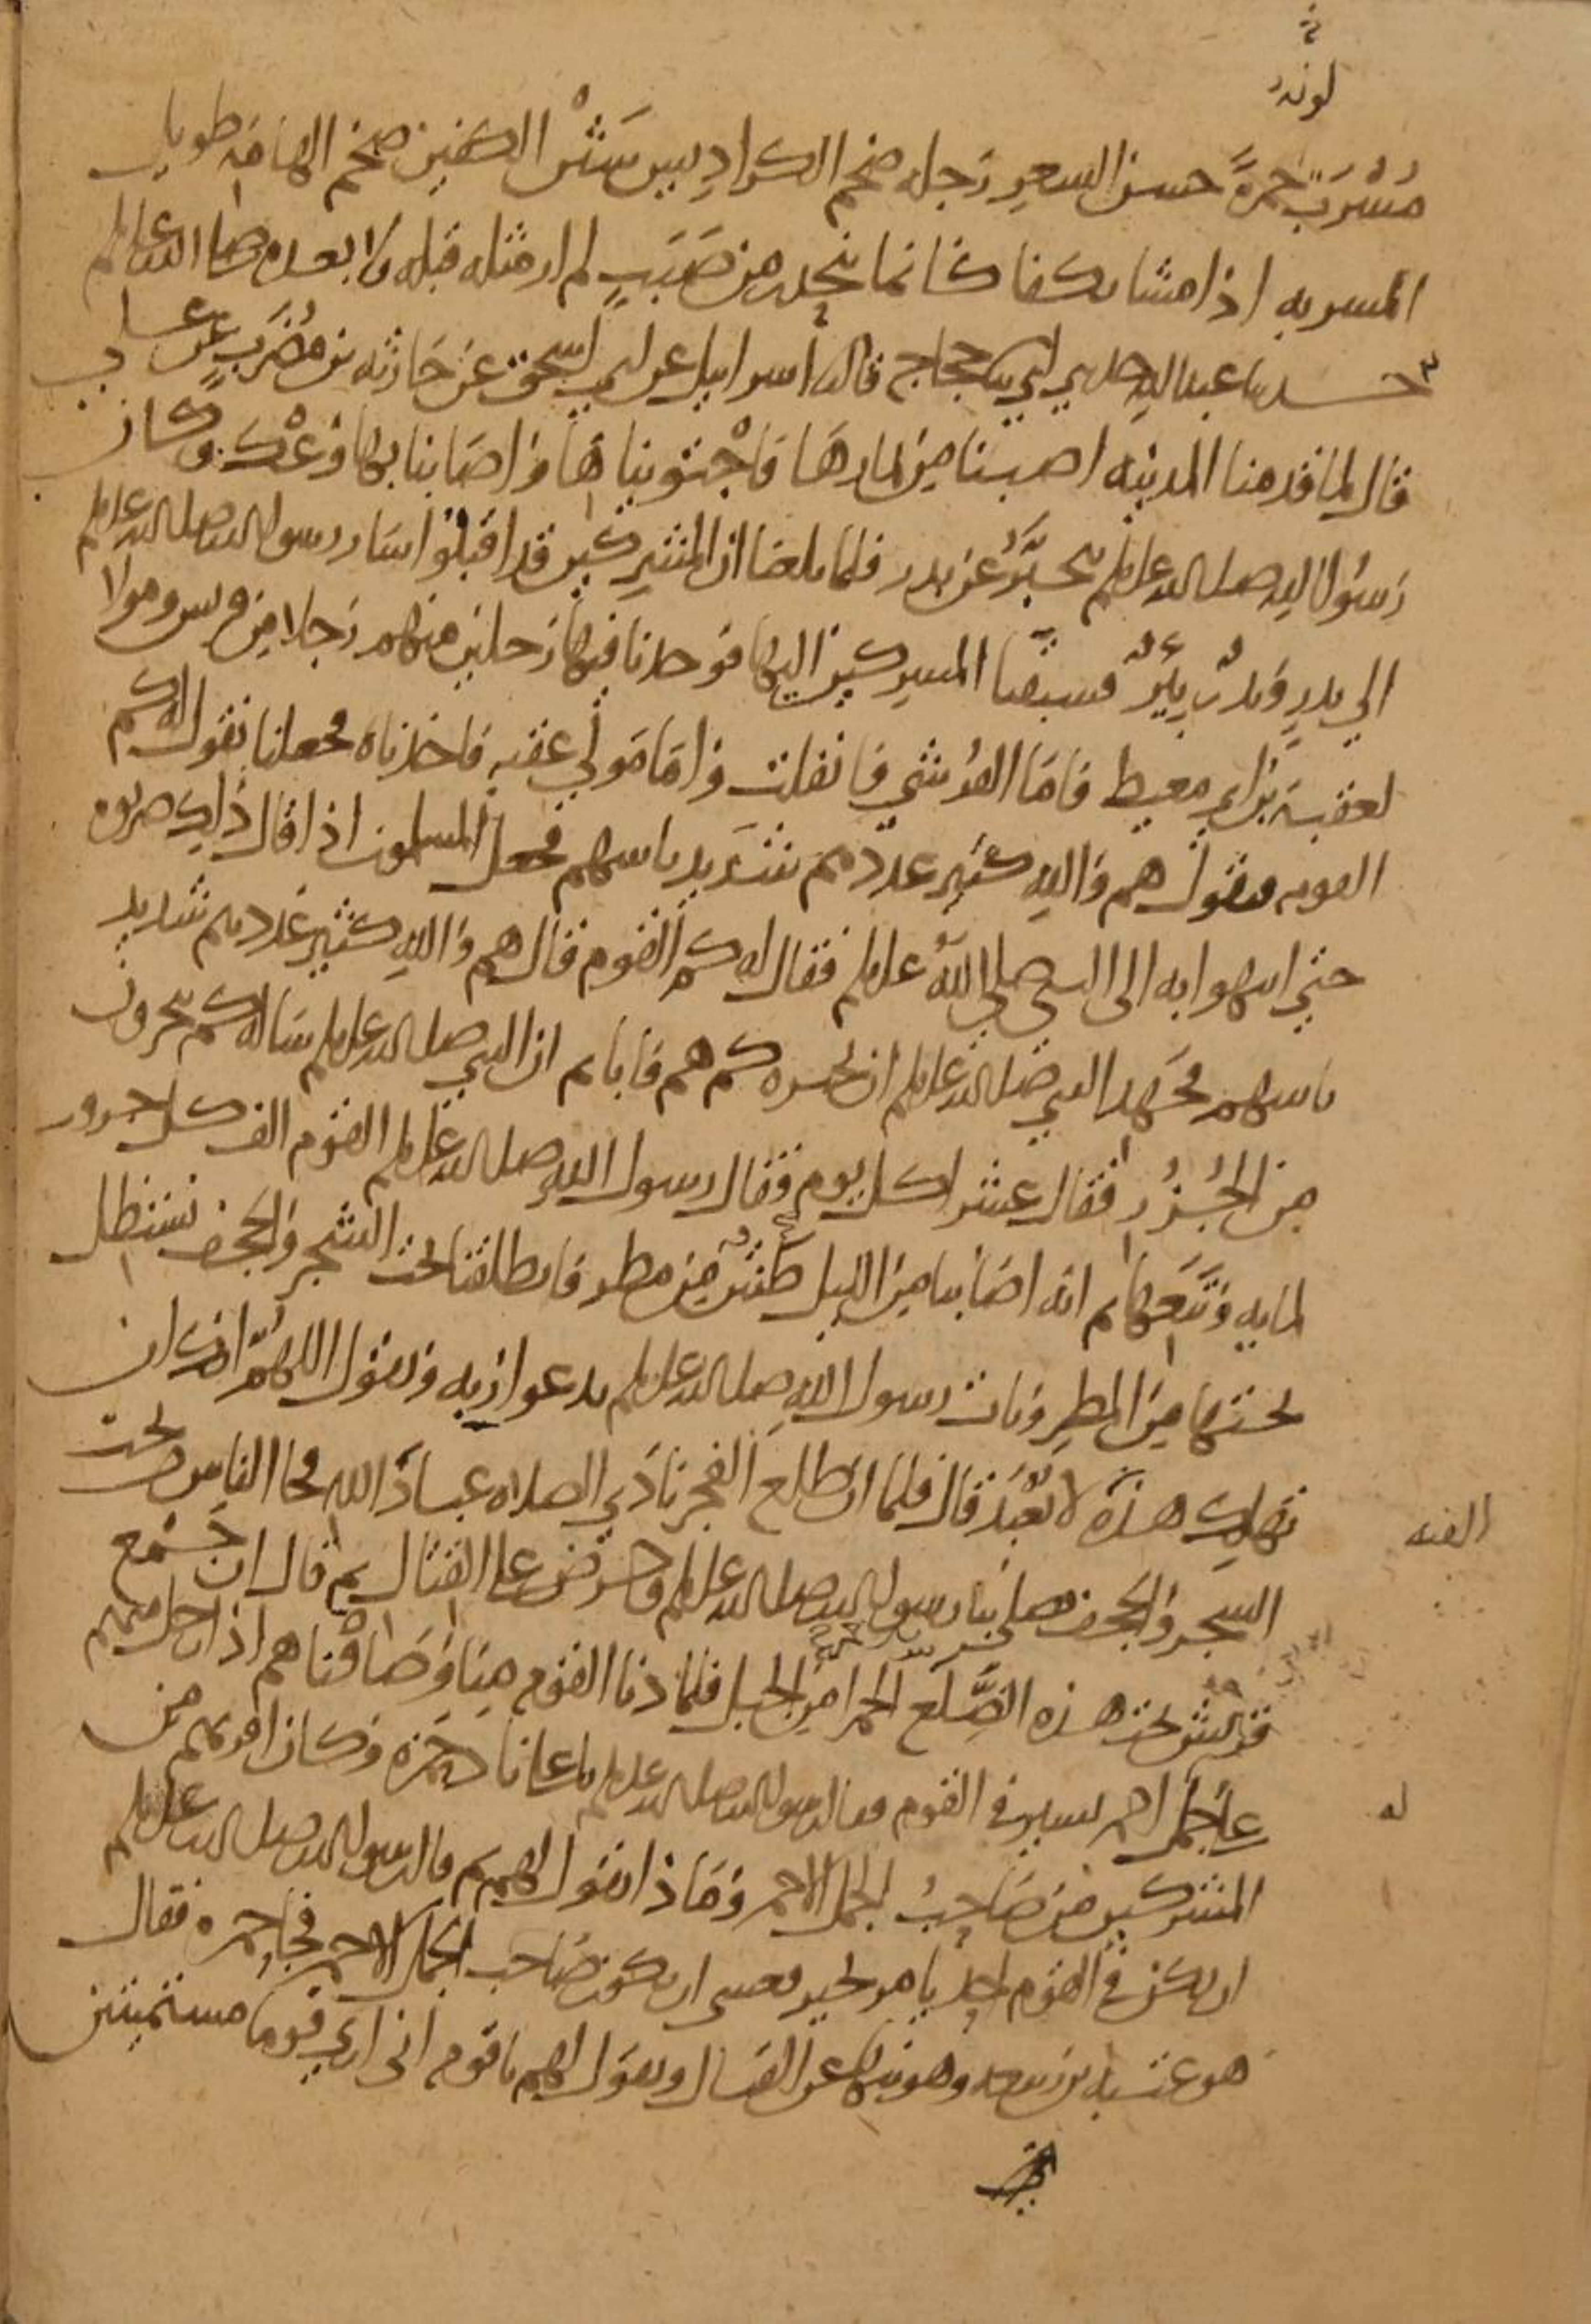 لونه
مُشْرَبٌ حمرةً حسن الشعر رَجِل ضخم الكراديس شَثْن الكفين ضخم الهامة طويل
المسربه اذا مشا تكفا كانما ينحدر من صَبَبٍ لم ار مثله قبله ولا بعده صلى الله عليه وسلم
حدثنا عبد الله حدثني ابي ثنا حجاج قال ثنا اسراييل عن ابي اسحق عن حَارثه بن مُضَرِّبٍ عن علي
قال لما قدمنا المدينه اصبنا مِن ثمارهَا فَاجْتويناهَا وَاصَابنا بها وَعْك وكان
رَسُول الله صلى الله عليه وسلم يتخبَّرُ عن بدر فلما بلغنا ان المشركين قد اقبلوا سَار رسول الله صلى الله عليه وسلم
الي بدرٍ وَبدرٌ بِئرٌ فسبقنا المشركين اليها فوجدنا فيها رَجلين منهم رَجلا من قريش ومولا
لعقبة بن ابي معيط فامَا القُرشي فَانفلت وَامَا مَولي عقبه فَاخذناه فجعلنا نقول له كم
القوم فيقول هم وَالله كثير عددهم شَديد باسهم فجعل المسلمون اذا قال ذَلك ضربوه
حتي انتهوا به الى النبي صلي اللهُ عليه وسلم فقال له كم القوم قال هم وَالله كثير عَددهم شديد
باسهم فجَهد النبي صلى الله عليه وسلم ان يخبره كم هم فَابا ثم ان النبي صلى الله عليه وسلم سَاله كم ينحرون
مِن الجُزُر فقال عشرا كل يوم فقال رسول الله صلى الله عليه وسلم القوم الف كل جزور
لمايه وَتَبَعِها ثم انه اصَابنا مِن الليل طَشٌ مِن مطر فانطلقنا تحت الشجر وَالحجَف نستظل
تحتها مِن المطر وَبات رسول الله صلى الله عليه وسلم يدعوا رَبه وَيقول اللهُمَّ انك ان
تُهلِك هذه لا تُعْبَد قال فلما ان طلع الفجر نادَي الصلاه عبادَ الله فجا الناس من تحت
الفئه
الشجر وَالحجف فصلى بنا رسول الله صلى الله عليه وسلم وحرض على القتال ثم قال ان جَمع
قريش تحت هذه الضِّلَع الحمرا مِن الجبل فلما دنا القوم مِنا وَصَافْناهم اذا رجل منهم
على جَملٍ احمر يسير في القوم فقال رسول الله صلى الله عليه وسلم يا علي نادِ حَمزه وَكان اقربهم من
له
المشركين مَن صَاحِبُ الجمل الاحمر وَمَاذا يقول لهم ثم قال رسول الله صلى الله عليه وسلم
ان يكن في القوم احد يامر بخير فعسى ان يكون صَاحب الجمل الاحمر فجا حمزه فقال
هو عتبه بن ربيعه وهو ينهى عن القتال ويقول لهم يا قوم اني اري قوما مستميتين